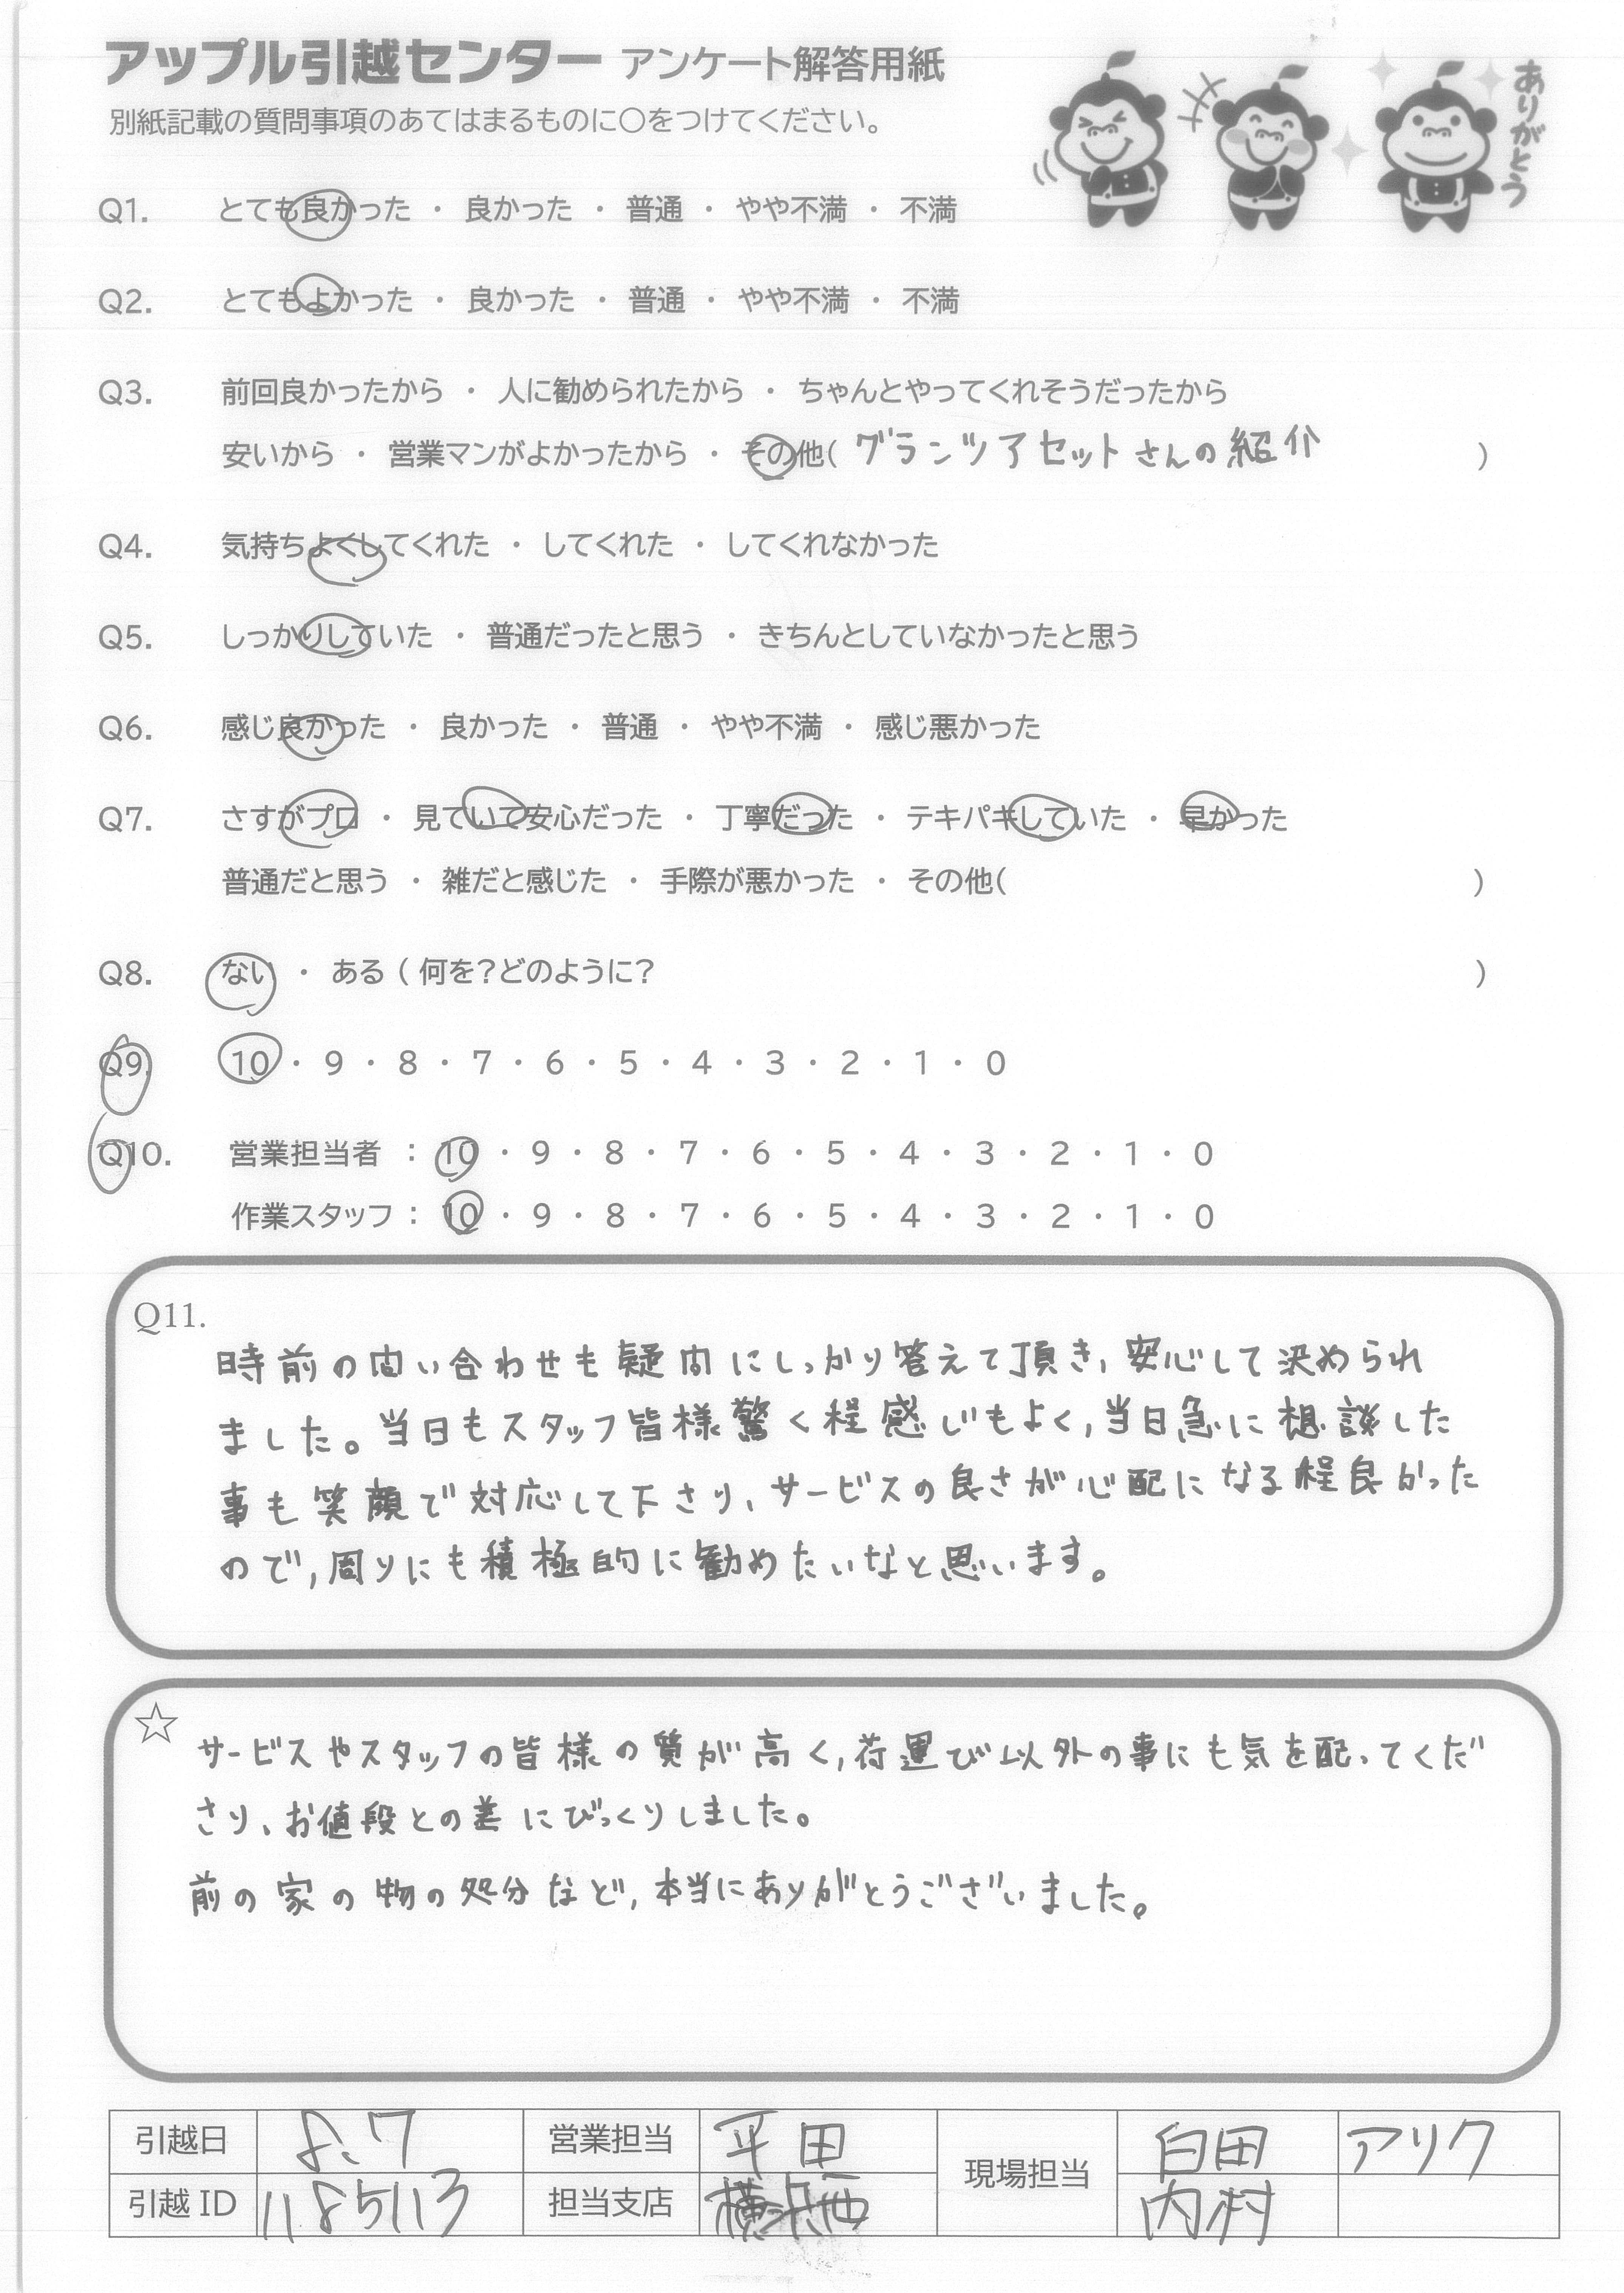 アップル引越センター アンケート解答用紙
別紙記載の質問事項のあてはまるものに○をつけてください。
ありがとう
Q1. とても良かった ・ 良かった ・ 普通 ・ やや不満 ・ 不満
Q2. とてもよかった ・ 良かった ・ 普通 ・ やや不満 ・ 不満
Q3. 前回良かったから ・ 人に勧められたから ・ ちゃんとやってくれそうだったから
安いから ・ 営業マンがよかったから ・ その他( グランツアセットさんの紹介 )
Q4. 気持ちよくしてくれた ・ してくれた ・ してくれなかった
Q5. しっかりしていた ・ 普通だったと思う ・ きちんとしていなかったと思う
Q6. 感じ良かった ・ 良かった ・ 普通 ・ やや不満 ・ 感じ悪かった
Q7. さすがプロ ・ 見ていて安心だった ・ 丁寧だった ・ テキパキしていた ・ 早かった
普通だと思う ・ 雑だと感じた ・ 手際が悪かった ・ その他( )
Q8. ない ・ ある ( 何を?どのように? )
Q9. 10 ・ 9 ・ 8 ・ 7 ・ 6 ・ 5 ・ 4 ・ 3 ・ 2 ・ 1 ・ 0
Q10. 営業担当者 : 10 ・ 9 ・ 8 ・ 7 ・ 6 ・ 5 ・ 4 ・ 3 ・ 2 ・ 1 ・ 0
作業スタッフ : 10 ・ 9 ・ 8 ・ 7 ・ 6 ・ 5 ・ 4 ・ 3 ・ 2 ・ 1 ・ 0
Q11.
時前の問い合わせも疑問にしっかり答えて頂き、安心して決められ
ました。当日もスタッフ皆様驚く程感じもよく,当日急に想談した
事も笑顔で対応して下さり、サービスの良さが心配になる程良かった
ので,周りにも積極的に勧めたいなと思います。
☆
サービスやスタッフの皆様の質が高く,荷運び以外の事にも気を配ってくだ
さり、お値段との差にびっくりしました。
前の家の物の処分など,本当にありがとうございました。
引越日 8.7 営業担当 平田 現場担当 白田 アリク
引越 ID 1185113 担当支店 内村